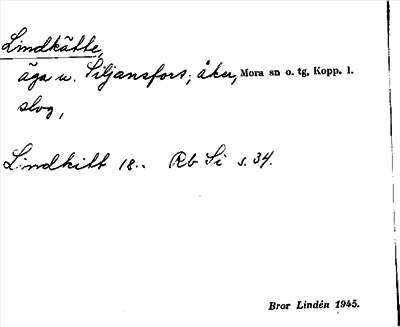 Lindkätte,
äga u. Siljansfors; åker, Mora sn o. tg, Kopp. l.
slog,
Lindkitt 18.. Rb Si s. 34.
Bror Lindén 1945.